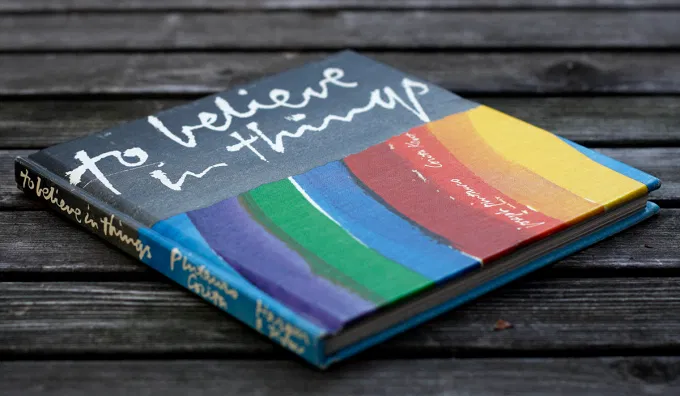 to believe
in things
Joseph Pintauro
Corita Kent
to believe in things
Pintauro
Corita
Harper
& Row